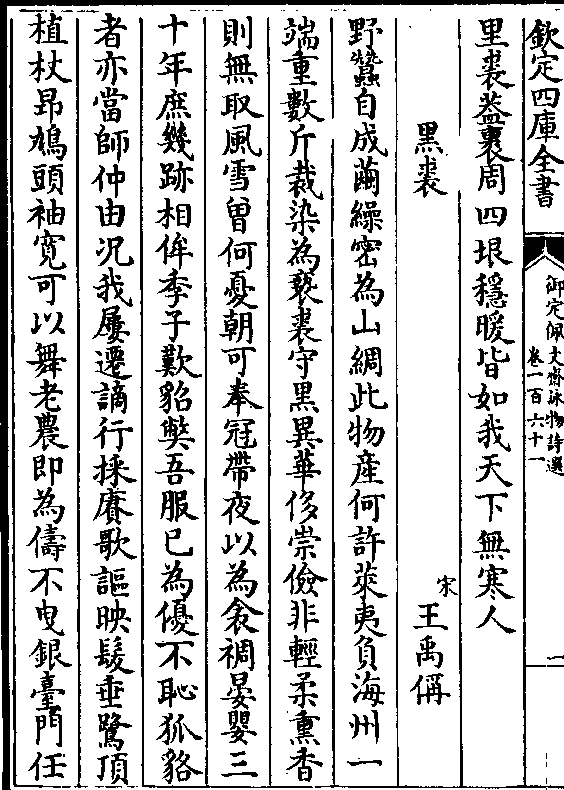 欽定四庫全書
御定佩文齋詠物詩選
卷一百六十一
里裘葢裹周四垠穩暖皆如我天下無寒人
黑裘
宋
王禹偁
野蠶自成繭繰密為山綢此物產何許萊夷負海州一
端重數斤裁染為褻裘守黑異華侈崇儉非輕柔熏香
則無取風雪曾何憂朝可奉冠帶夜以為衾裯晏嬰三
十年庶幾跡相侔季子歎貂獘吾服已為優不恥狐貉
者亦當師仲由况我屢遷謫行採賡歌謳映髮垂鷺頂
植杖昂鳩頭袖寛可以舞老農即為儔不曳銀臺門任